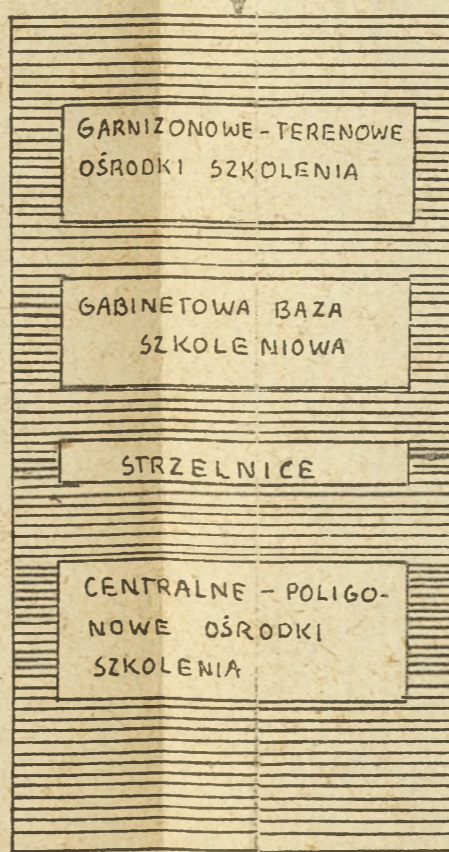 GARNIZONOWE-TERENOWE
OŚRODKI SZKOLENIA
GABINETOWA BAZA
SZKOLENIOWA
STRZELNICE
CENTRALNE - POLIGO-
NOWE OŚRODKI
SZKOLENIA